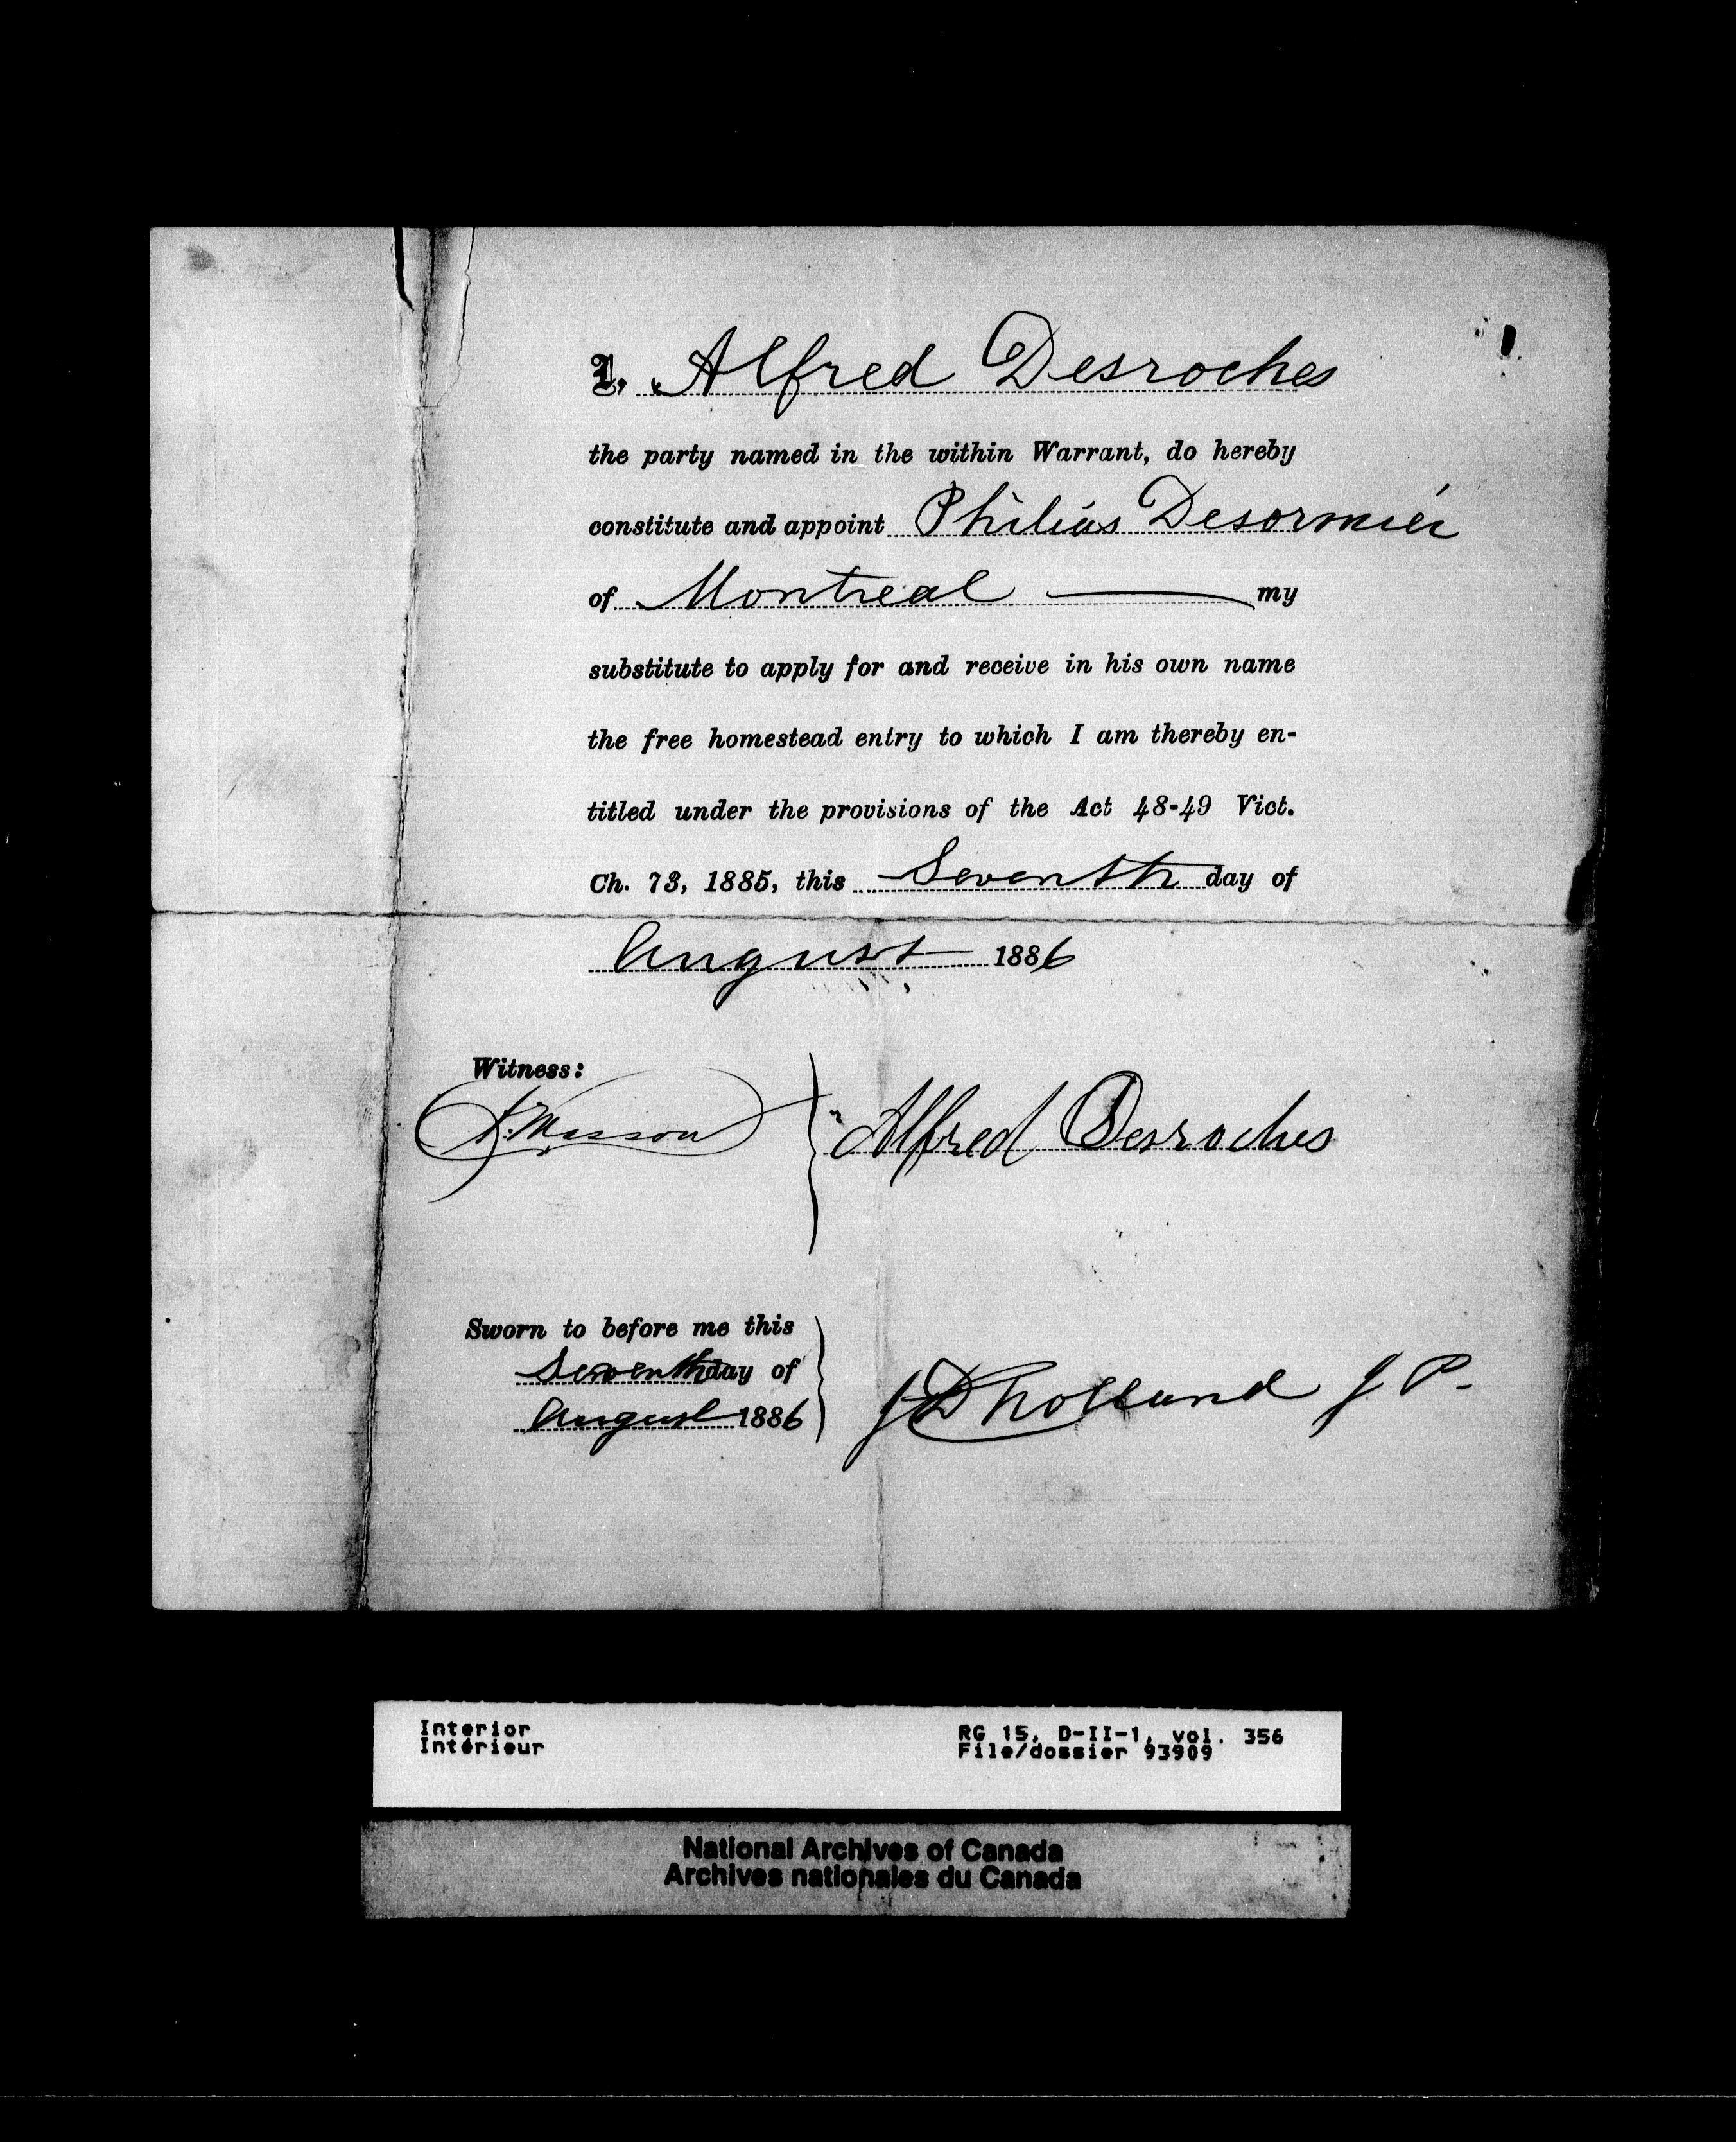 I, Alfred Desroches
the party named in the within Warrant, do hereby
constitute and appoint Philias Desormier
of Montreal my
substitute to apply for and receive in his own name
the free homestead entry to which I am thereby en-
titled under the provisions of the Act 48-49 Vict.
Ch. 73, 1885, this Seventh day of
August 1886
Witness:
Masson
Alfred Desroches
Sworn to before me this
Seventh day of
August 1886
J D Holland J P.
Interior
Intérieur
RG 15, D-II-1, vol. 356
File/dossier 93909
National Archives of Canada
Archives nationales du Canada